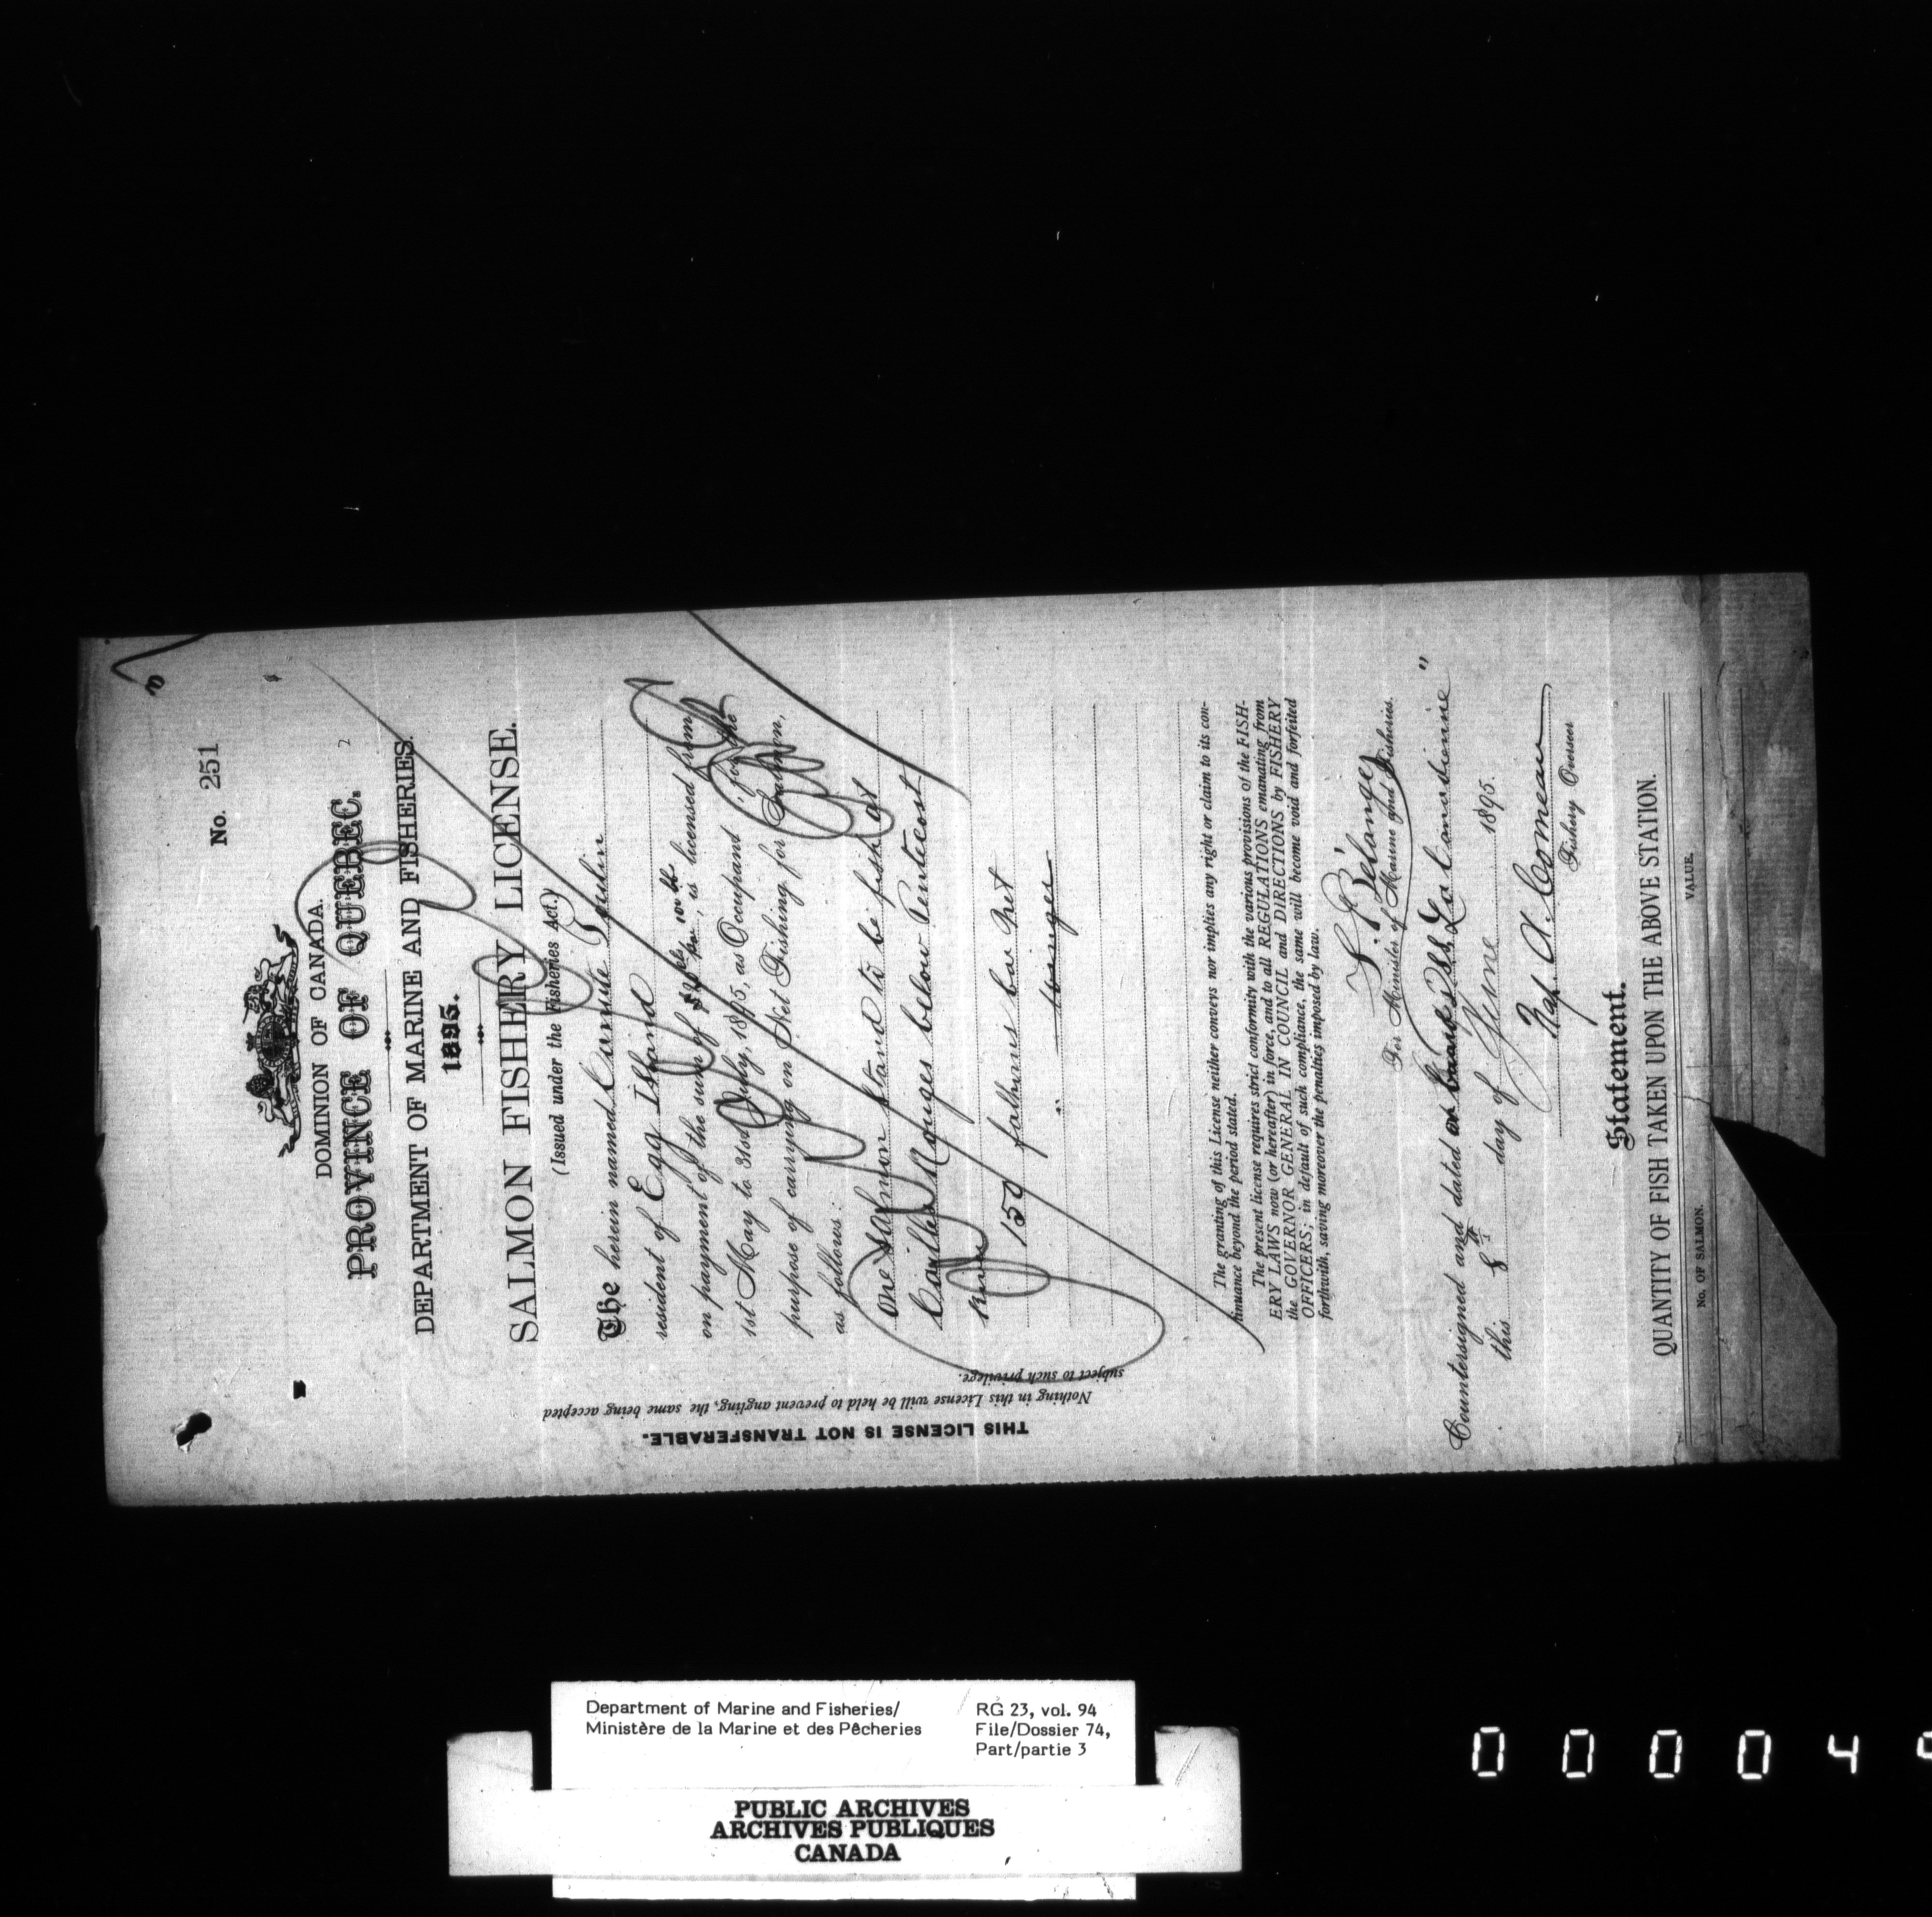 No. 251
DOMINION OF CANADA.
PROVINCE OF QUEBEC.
DEPARTMENT OF MARINE AND FISHERIES.
1895.
SALMON FISHERY LICENSE.
(Issued under the Fisheries Act.)
The herein named Camule
resident of Egg Island
on payment of the sum of is licensed from
1st May to 31st July, 1895, as Occupant for the
purpose of carrying on Net Fishing for Salmon,
as follows:
One salmon stand to be fish at
Cailles Rouges below Pentecost
River
150 fathoms bar Net
" " winger
The granting of this License neither conveys nor implies any right or claim to its con-
tinuance beyond the period stated.
The present license requires strict conformity with the various provisions of the FISH-
ERY LAWS now (or hereafter) in force, and to all REGULATIONS emanating from
the GOVERNOR GENERAL IN COUNCIL and DIRECTIONS by FISHERY
OFFICERS; in default of such compliance, the same will become void and forfeited
forthwith, saving moreover the penalties imposed by law.
S. P. Bélanger
For Minister of Marine and Fisheries.
Countersigned and dated on board SS. La Canadienne"
this 8th day of June 1895.
Nap. A. Comeau
Fishery Overseer
Statement.
QUANTITY OF FISH TAKEN UPON THE ABOVE STATION.
No. OF SALMON. VALUE.
THIS LICENSE IS NOT TRANSFERABLE.
Nothing in this License will be held to prevent angling, the same being accepted
subject to such privilege.
Department of Marine and Fisheries/
Ministère de la Marine et des Pêcheries
RG 23, vol. 94
File/Dossier 74,
Part/partie 3
PUBLIC ARCHIVES
ARCHIVES PUBLIQUES
CANADA
00004